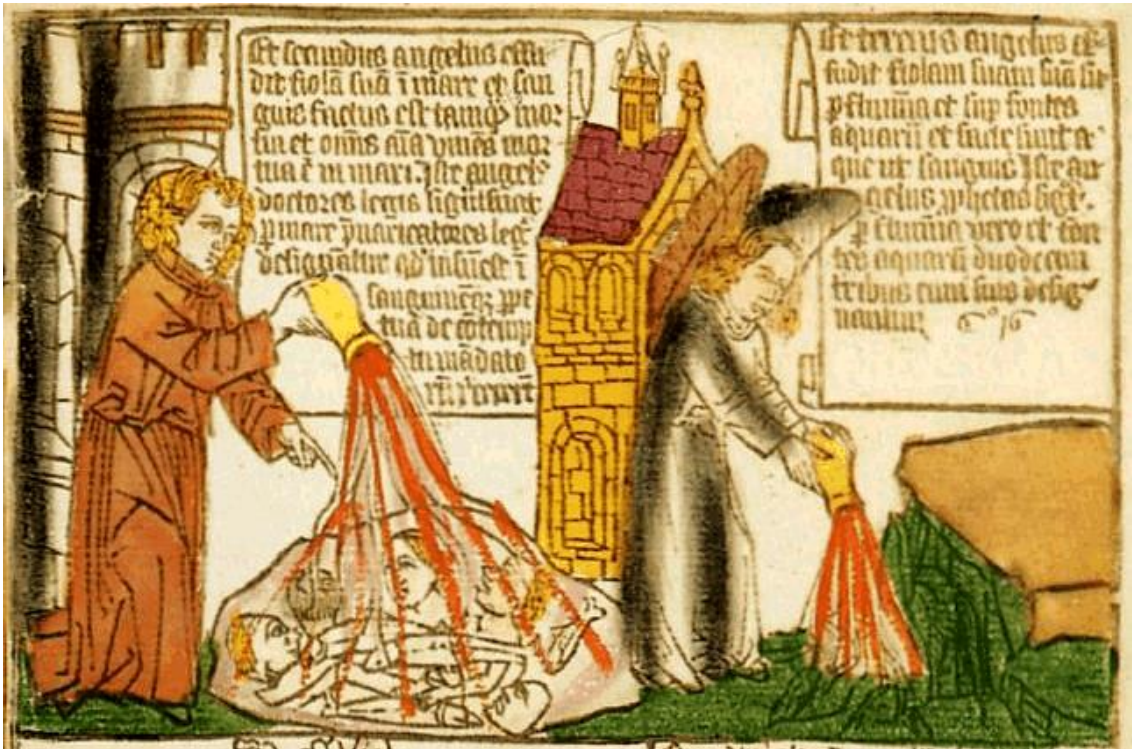 Et secundus angelus effu
dit fiolā suā ī mare et san
guis factus est tamqȝ mor
tui et omnis aīa vivēs mor
tua ē in mari. Iste angel9
doctores legis significat
p mare pvaricatores leg
designātur
sanguinē ppe
tuā de cōtemp
tu mādato
rū
Et tercius angelus ef
fudit fiolam suam sup
flumīa et sup fontes
aquarū et facte sunt a
que ut sanguis Iste an
gelus pphetas
p flumīa vero et fon
tes aquarū duodecim
tribus cum suis desig
nantur